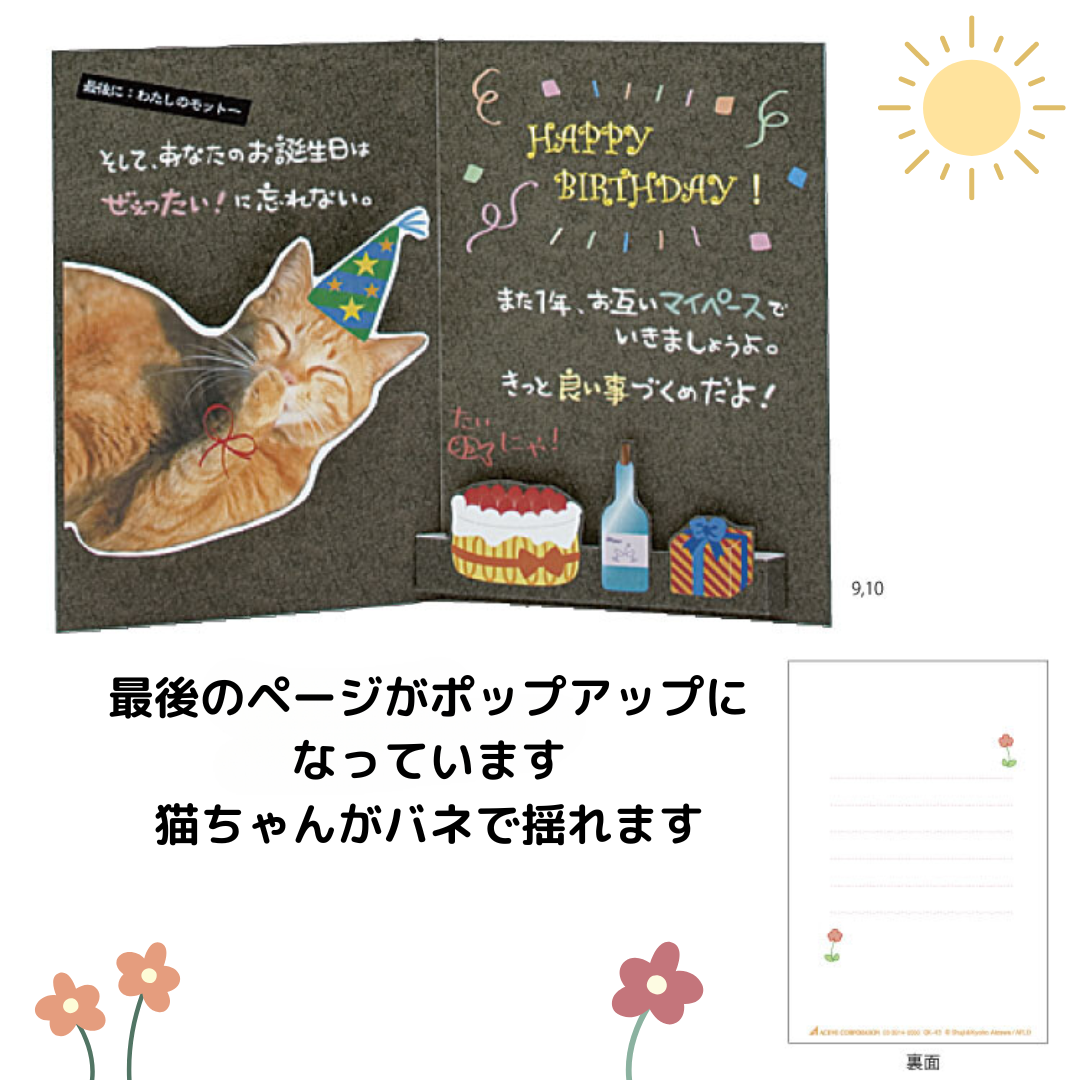 最後に:わたしのモットー
そして、あなたのお誕生日は
ぜぇったい!に忘れない。
HAPPY
BIRTHDAY!
また1年、お互いマイペースで
いきましょうよ。
きっと良い事づくめだよ!
たい
にゃ!
9,10
最後のページがポップアップに
なっています
猫ちゃんがバネで揺れます
ACTIVE CORPORATION
裏面